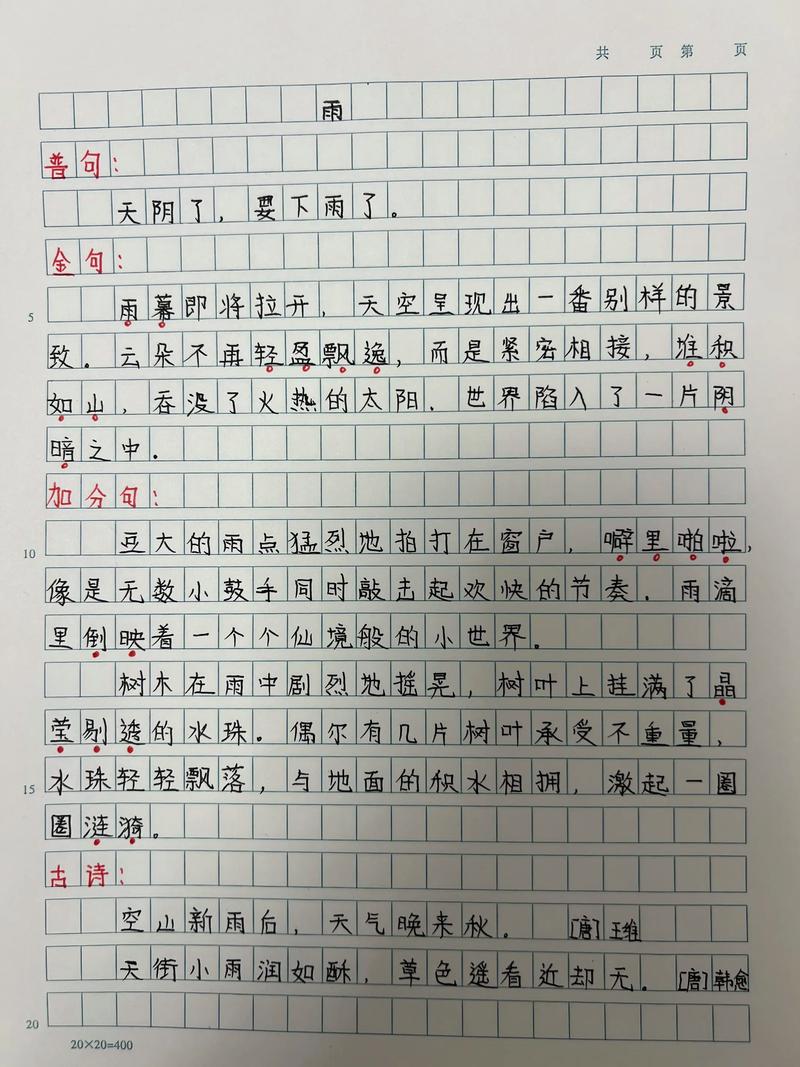 共 页 第 页
雨
普句：
天阴了，要下雨了。
金句：
雨幕即将拉开，天空呈现出一番别样的景
5
致．云朵不再轻盈飘逸，而是紧密相接，堆积
如山，吞没了火热的太阳．世界陷入了一片阴
暗之中．
加分句：
豆大的雨点猛烈地拍打在窗户，噼里啪啦，
10
像是无数小鼓手同时敲击起欢快的节奏．雨滴
里倒映着一个个仙境般的小世界。
树木在雨中剧烈地摇晃，树叶上挂满了晶
莹剔透的水珠。偶尔有几片树叶承受不重量，
水珠轻轻飘落，与地面的积水相拥，激起一圈
15
圈涟漪。
古诗：
空山新雨后，天气晚来秋。 [唐] 王维
天街小雨润如酥，草色遥看近却无。 [唐] 韩愈
20
20×20=400